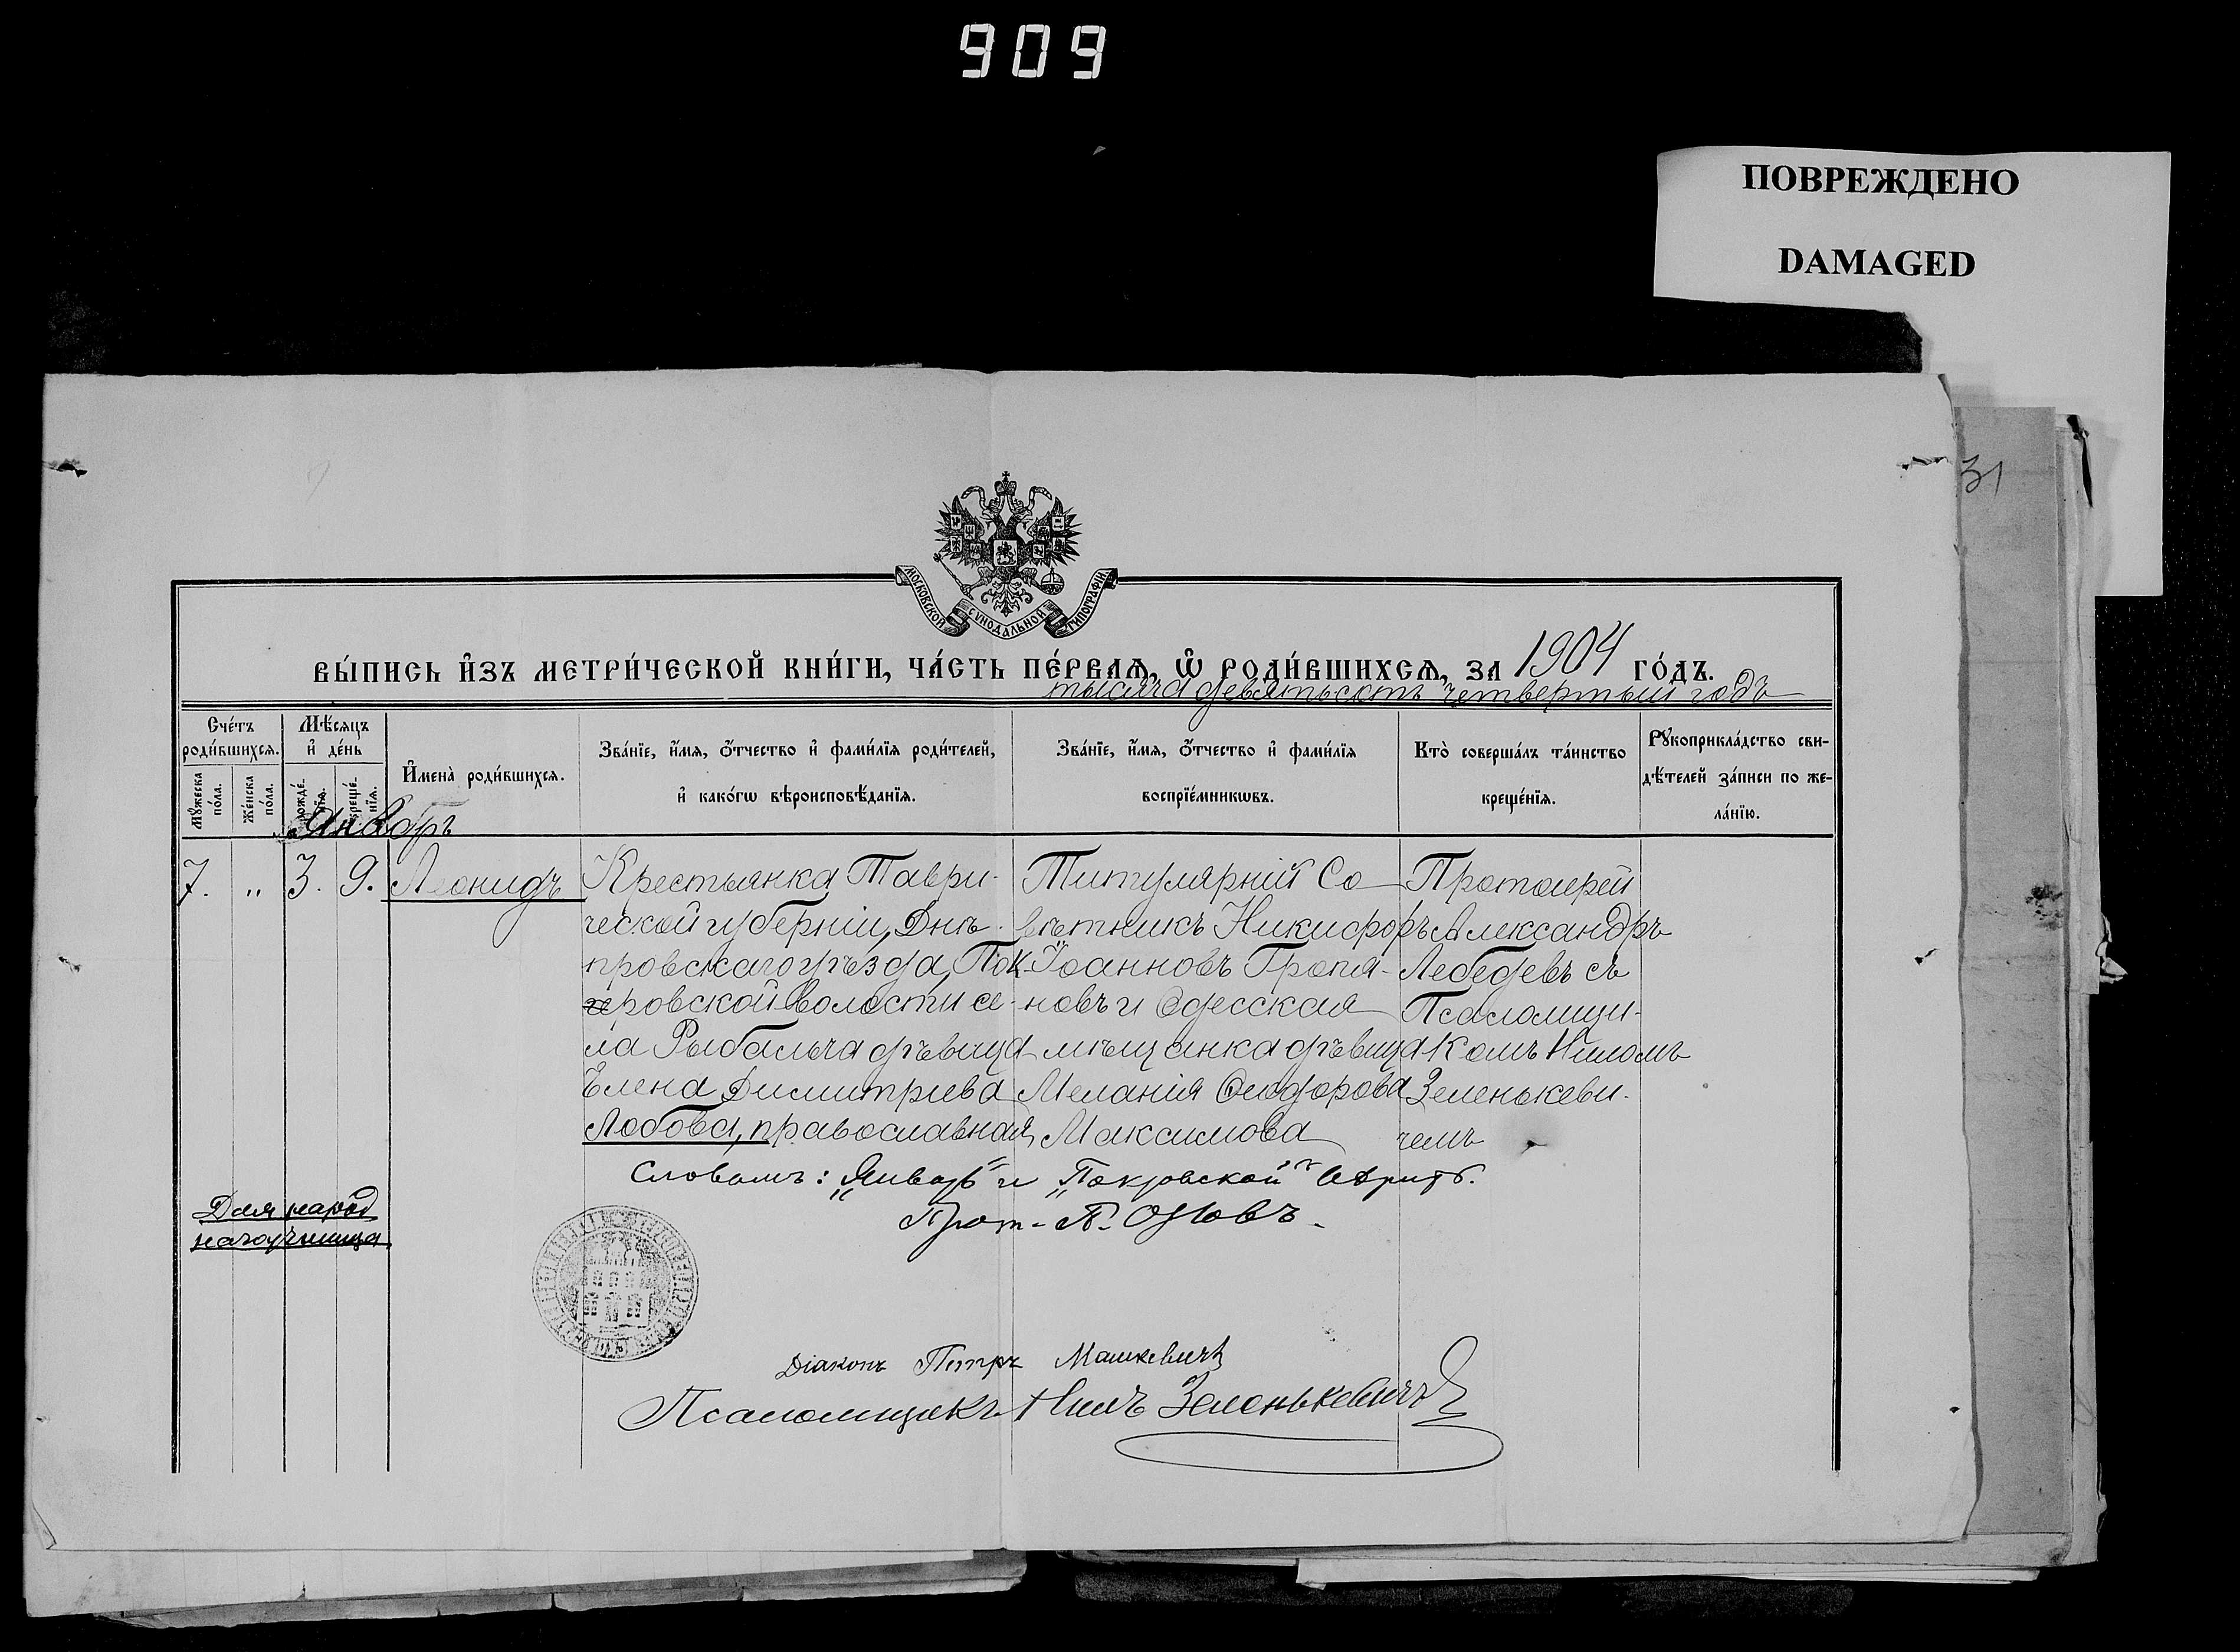 909
ПОВРЕЖДЕНО
DAMAGED
31
МОСКОВСКОЙ СУНОДАЛЬНОЙ ТИПОГРАФІИ.
ВЫ́ПИСЬ И҆ЗЪ МЕТРИ́ЧЕСКОЙ КНИ́ГИ, ЧА́СТЬ ПЕ́РВАѦ, Ѡ҆ РОДИ́ВШИХСѦ, ЗА 1904 ГО́ДЪ.
тысяча девятьсотъ четвертый годъ
Сче́тъ роди́вшихсѧ.
Мꙋ́жеска по́ла.
Же́нска по́ла.
Мѣ́сѧцъ и҆ де́нь
рожде́нїѧ.
креще́нїѧ.
И҆мена̀ роди́вшихсѧ.
Зва́нїе, и҆́мѧ, ѻ҆́тчество и҆ фами́лїѧ роди́телей,
и҆ како́гѡ вѣроисповѣ́данїѧ.
Зва́нїе, и҆́мѧ, ѻ҆́тчество и҆ фами́лїѧ
воспрїе́мникѡвъ.
Кто̀ соверша́лъ та́инство
креще́нїѧ.
Рꙋкоприкла́дство сви-
дѣ́телей за́писи по же-
ла́нїю.
Январь
7. „ 3. 9. Леонидъ
Крестьянка Таври-
ческой губерніи, Днѣ-
провскаго уѣзда, Пок-
ровской волости се-
ла Рыбальча дѣвица
Елена Димитріева
Лобова, православная
Титулярній Со-
вѣтникъ Никифоръ
Іоанновъ Гропя-
новъ и Одесская
мѣщанка дѣвица
Меланія Ѳеодорова
Максимова
Протоіерей
Александръ
Лебедевъ съ
Псаломщи-
комъ Ниломъ
Зеленькеви-
чемъ
Словамъ: „Январь" и „Покровской" вѣрить.
Прот. П. Орловъ.
Для народ
наго училища.
Діаконъ Петръ Машкевичъ
Псаломщикъ Нилъ Зеленькевичъ